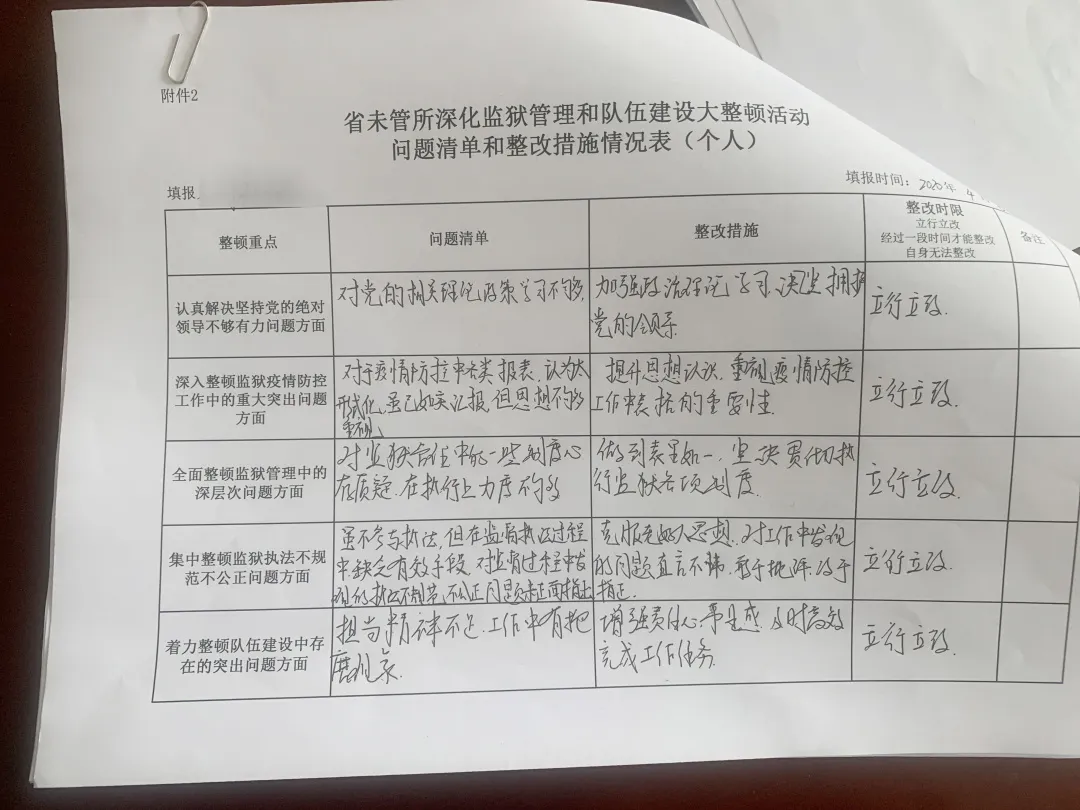 附件2
省未管所深化监狱管理和队伍建设大整顿活动
问题清单和整改措施情况表（个人）
填报
填报时间：2020年 4
整顿重点
问题清单
整改措施
整改时限
立行立改
经过一段时间才能整改
自身无法整改
备注
认真解决坚持党的绝对
领导不够有力问题方面
对党的相关理论政策学习不够.
加强政治理论学习.决坚拥护
党的领导.
立行立改.
深入整顿监狱疫情防控
工作中的重大突出问题
方面
对于疫情防控中各类报表.认为太
形式化.虽已如实汇报.但思想不够
重视.
提升思想认识.重视疫情防控
工作中表格的重要性.
立行立改.
全面整顿监狱管理中的
深层次问题方面
对监狱管理中的一些制度心
存质疑.在执行上力度不够
做到表里如一.坚决贯彻执
行监狱各项制度.
立行立改.
集中整顿监狱执法不规
范不公正问题方面
虽不参与执法,但在监督执法过程
中缺乏有效手段.对监督过程中发
现的执法不规范,不公正问题未正面指出
克服老好人思想.对工作中发现
的问题直言不讳.敢于批评.敢于
指正.
立行立改.
着力整顿队伍建设中存
在的突出问题方面
担当精神不足.工作中有拖
磨现象.
增强责任心.事业感.及时高效
完成工作任务.
立行立改.